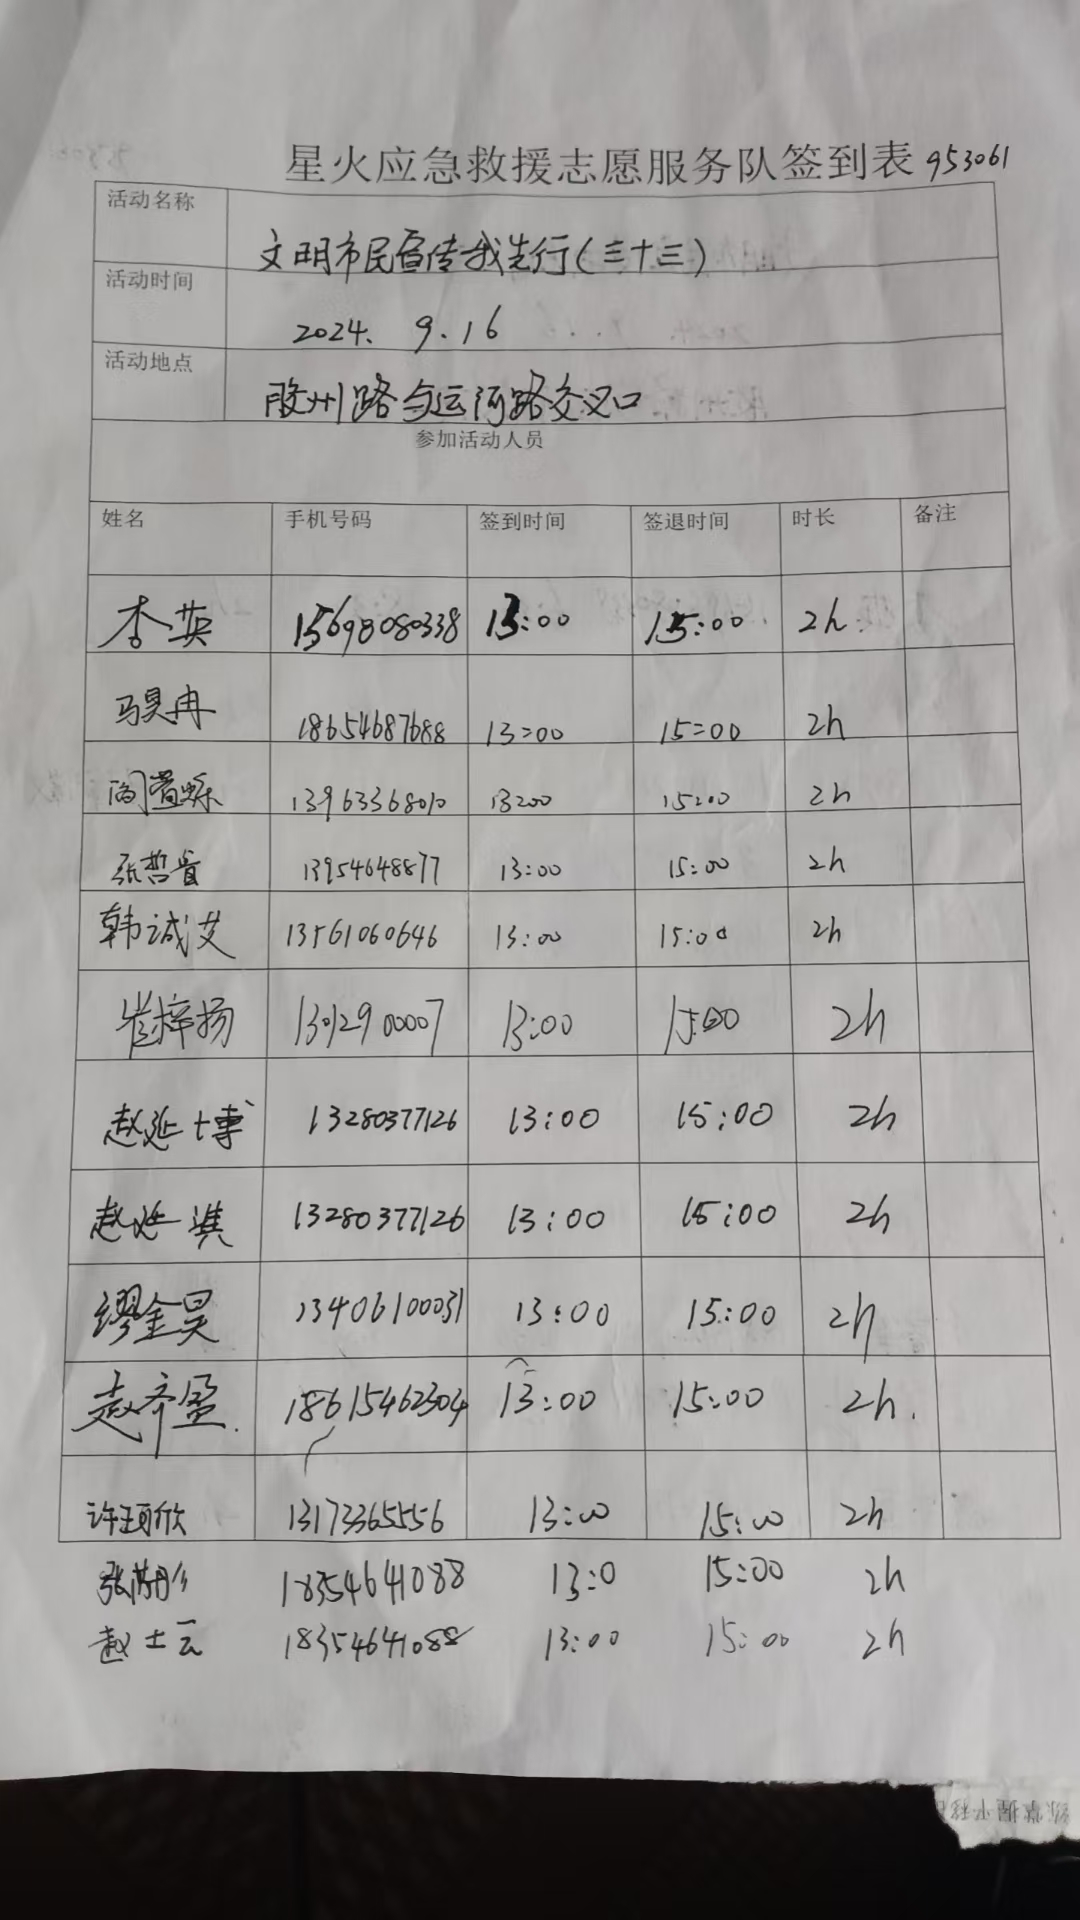 星火应急救援志愿服务队签到表 953061
活动名称 文明市民宣传我先行(三十三)
活动时间 2024. 9.16
活动地点 胶州路与运河路交叉口
参加活动人员
姓名 手机号码 签到时间 签退时间 时长 备注
李英 15698080338 13:00 15:00 2h.
马昊冉 18654687688 13:00 15:00 2h
13963368010 13:00 15:00 2h
张哲睿 13954648877 13:00 15:00 2h
韩诚艾 13561060646 13:00 15:00 2h
崔梓扬 13012900007 13:00 15:00 2h
赵延博 13280377126 13:00 15:00 2h
赵延淇 13280377126 13:00 15:00 2h
缪金昊 13406100031 13:00 15:00 2h
赵齐盈. 18615462304 13:00 15:00 2h.
许颐欣 13173365556 13:00 15:00 2h
18354641088 13:0 15:00 2h
赵士云 18354641088 13:00 15:00 2h